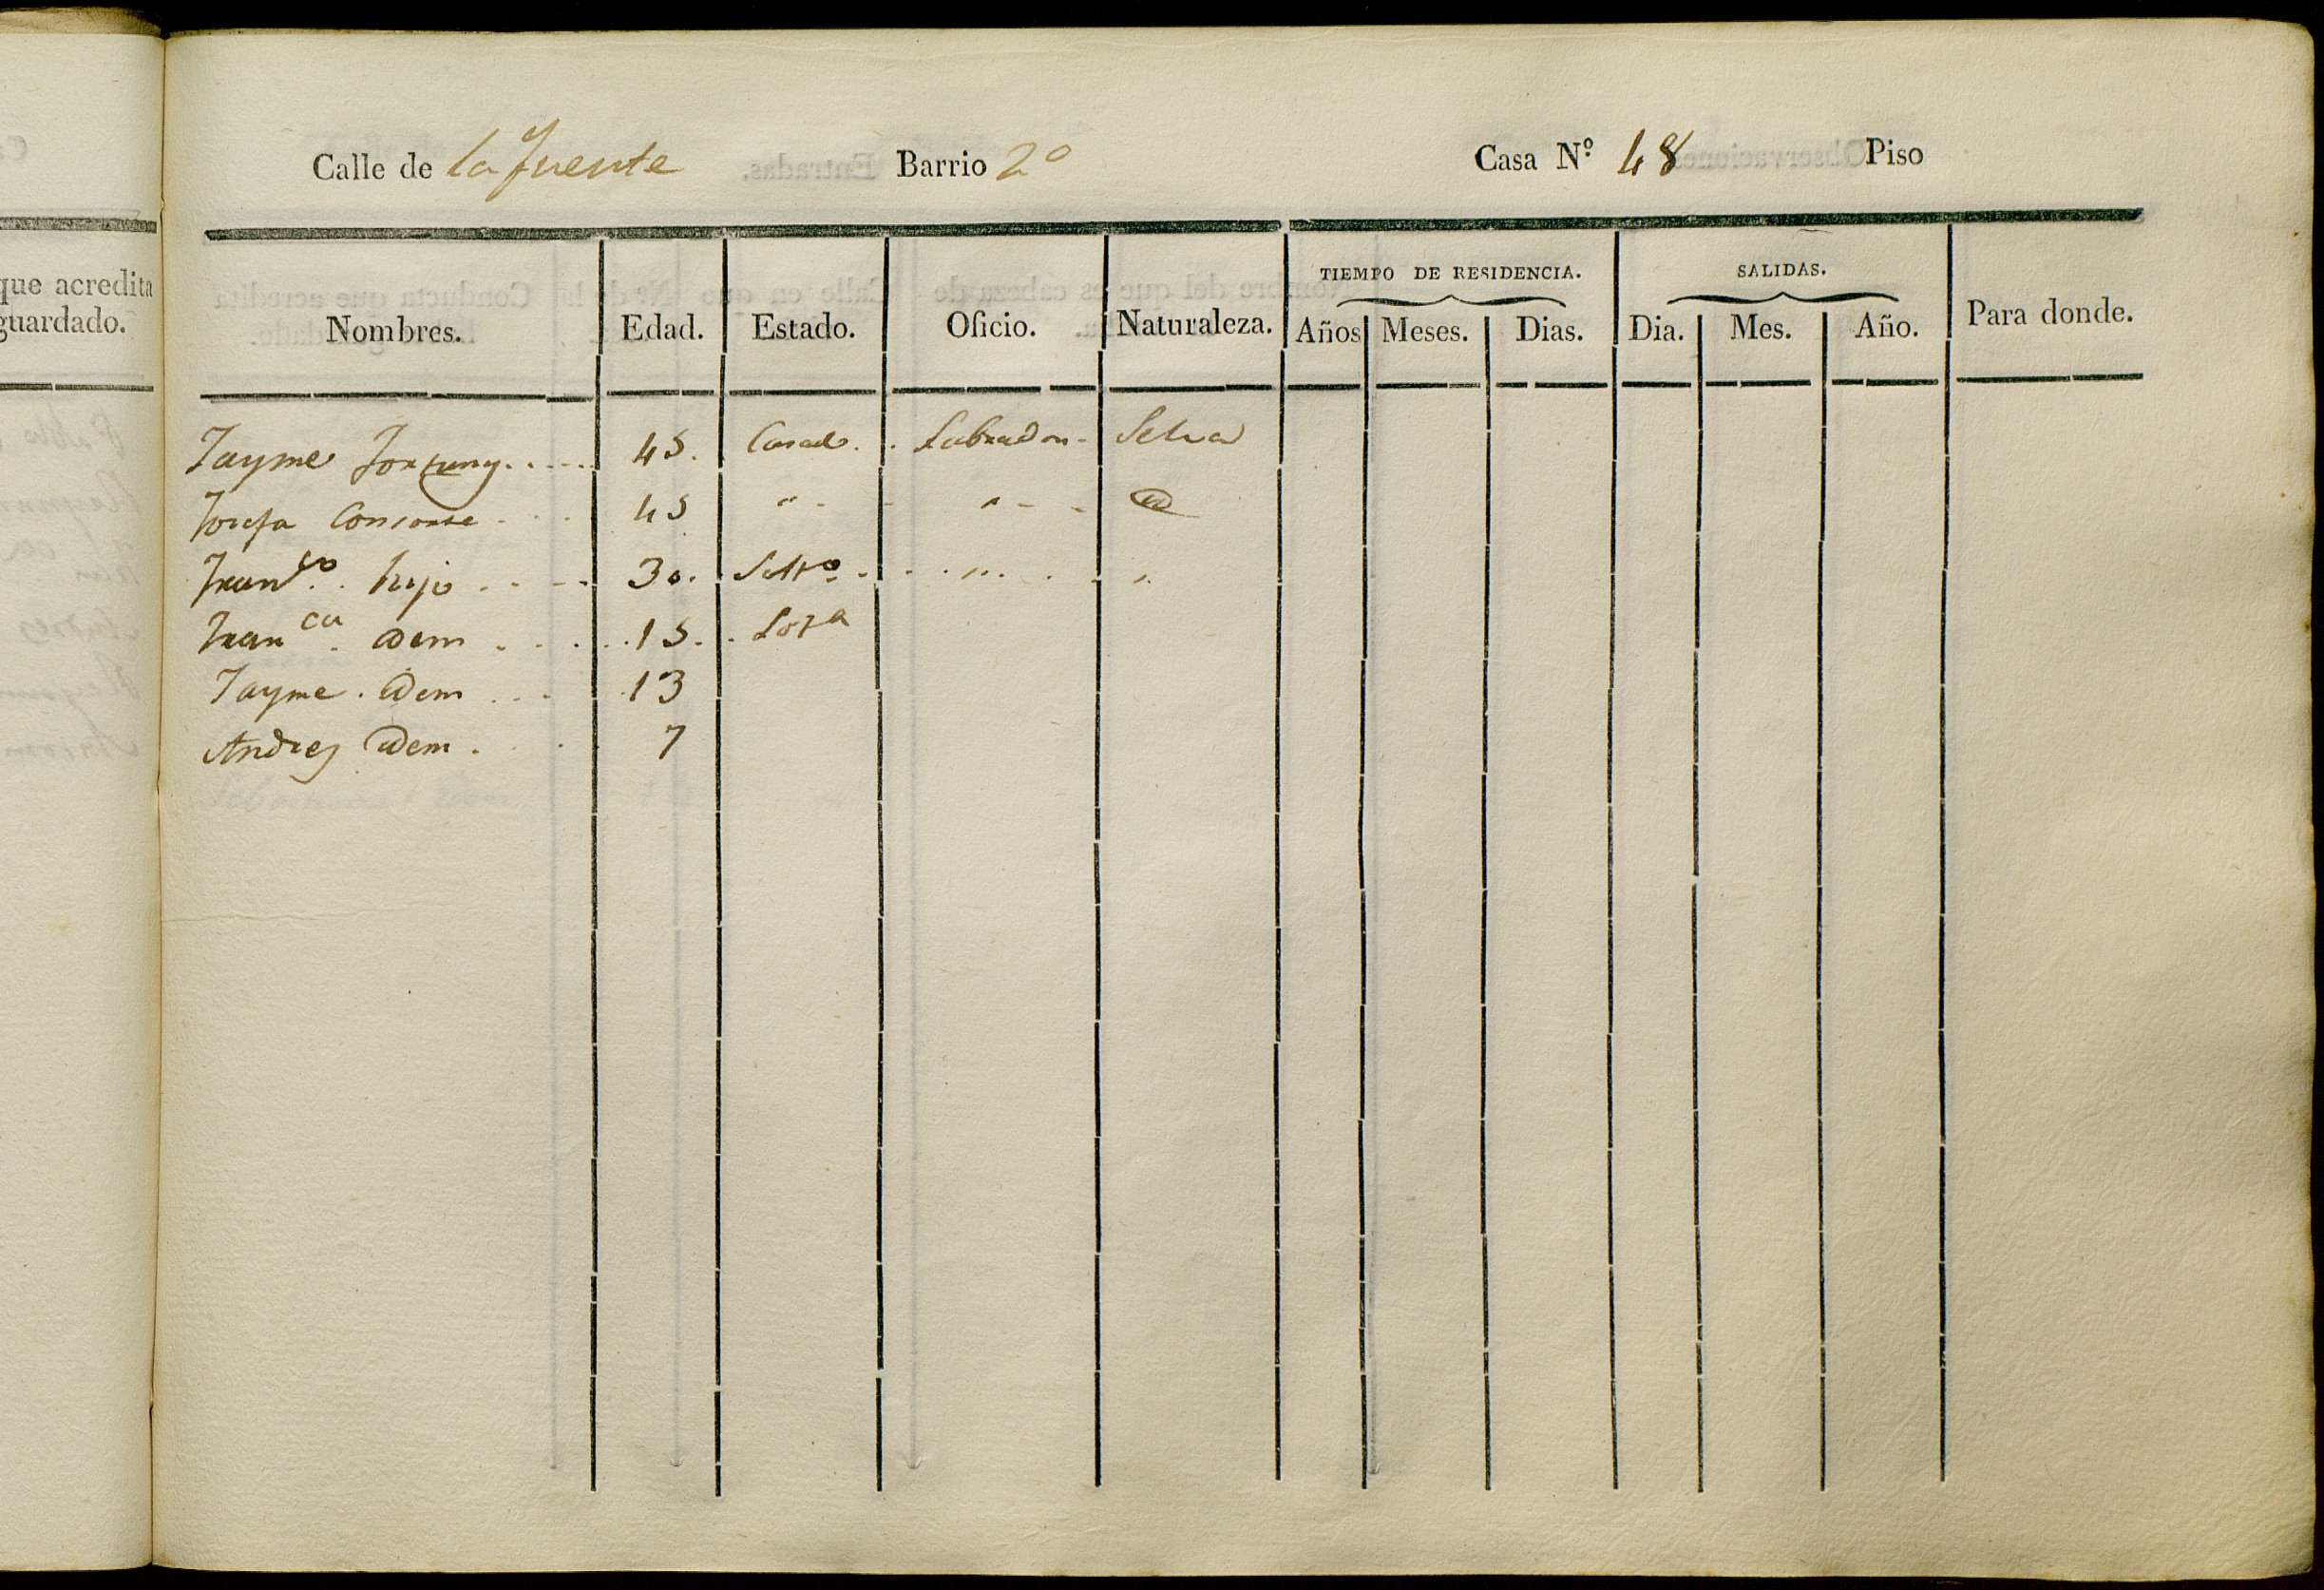 que acredita
guardado.
Calle de la fuente Barrio 2º Casa Nº 48 Piso
TIEMPO DE RESIDENCIA. SALIDAS.
Nombres. Edad. Estado. Oficio. Naturaleza. Años Meses. Dias. Dia. Mes. Año. Para donde.
Jayme Fortuny 45. Casado. Labrador Selva
Josefa Consorte 45 " "
Franco. hijo 30. Solto. " "
Franca. idem 15. Solta
Jayme. idem 13
Andres idem. 7